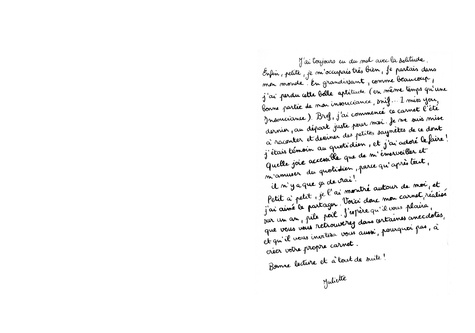 J'ai toujours eu du mal avec la solitude.
Enfin, petite, je m'occupais très bien, je partais dans
mon monde. En grandissant, comme beaucoup,
j'ai perdu cette belle aptitude (en même temps qu'une
bonne partie de mon insouciance, snif... I miss you,
Insouciance). Bref, j'ai commencé ce carnet l'été
dernier, au départ juste pour moi. Je me suis mise
à raconter et dessiner des petites saynètes de ce dont
j'étais témoin au quotidien, et j'ai adoré le faire!
Quelle joie accessible que de m'émerveiller et
m'amuser du quotidien, parce qu'après tout,
il n'y a que ça de vrai!
Petit à petit, je l'ai montré autour de moi, et
j'ai aimé le partager. Voici donc mon carnet, réalisé
sur un an, pile poil. J'espère qu'il vous plaira,
que vous vous retrouverez dans certaines anecdotes,
et qu'il vous invitera vous aussi, pourquoi pas, à
créer votre propre carnet.
Bonne lecture et à tout de suite!
Juliette